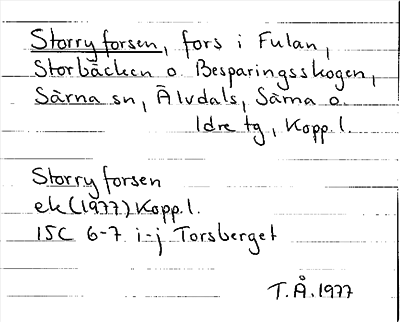 Storryforsen, fors i Fulan,
Storbäcken o. Besparingsskogen,
Särna sn, Älvdals, Särna o.
Idre tg, Kopp. l.
Storryforsen
ek (1977) Kopp. l.
15C 6-7 i-j Torsberget
T.Å. 1977